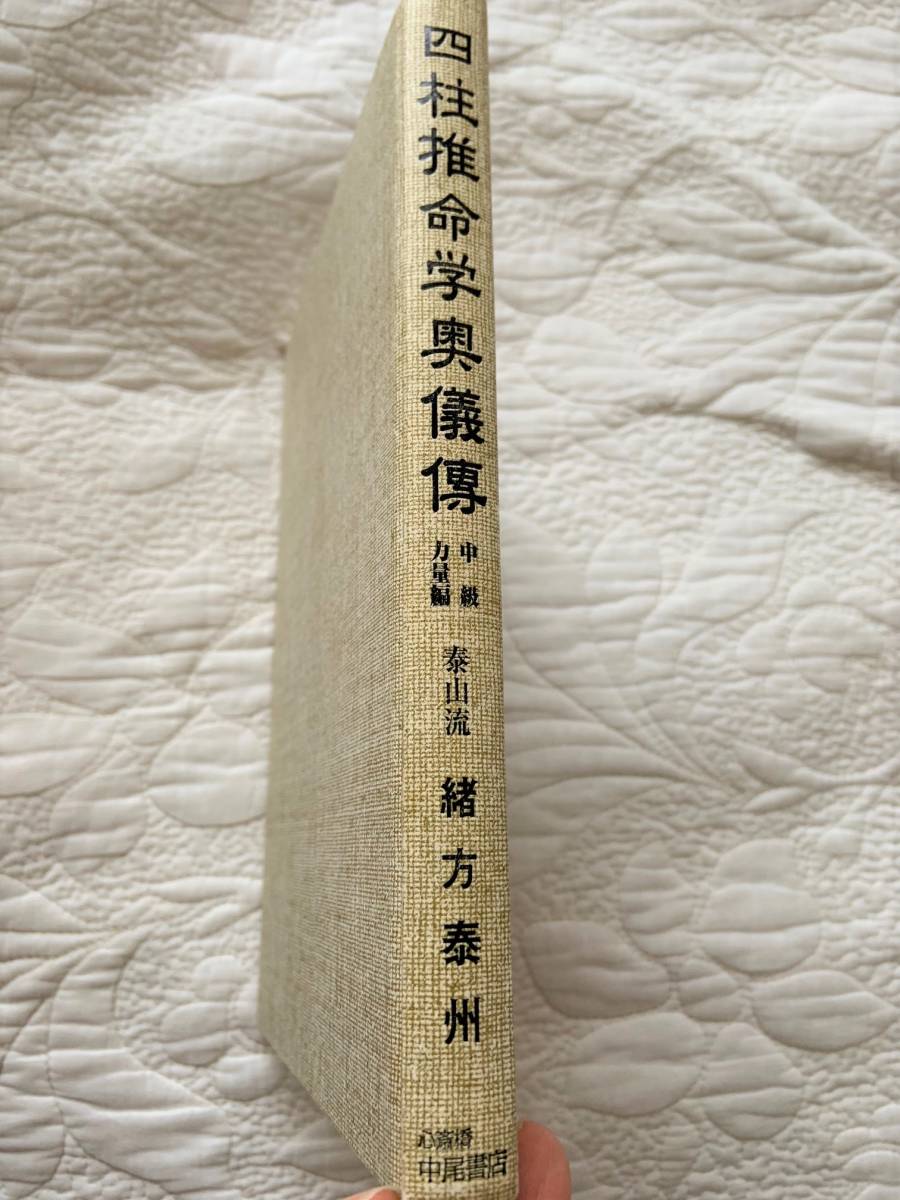 四柱推命学奥儀傳
中級
力量編
泰山流
緒方泰州
心斎橋
中尾書店